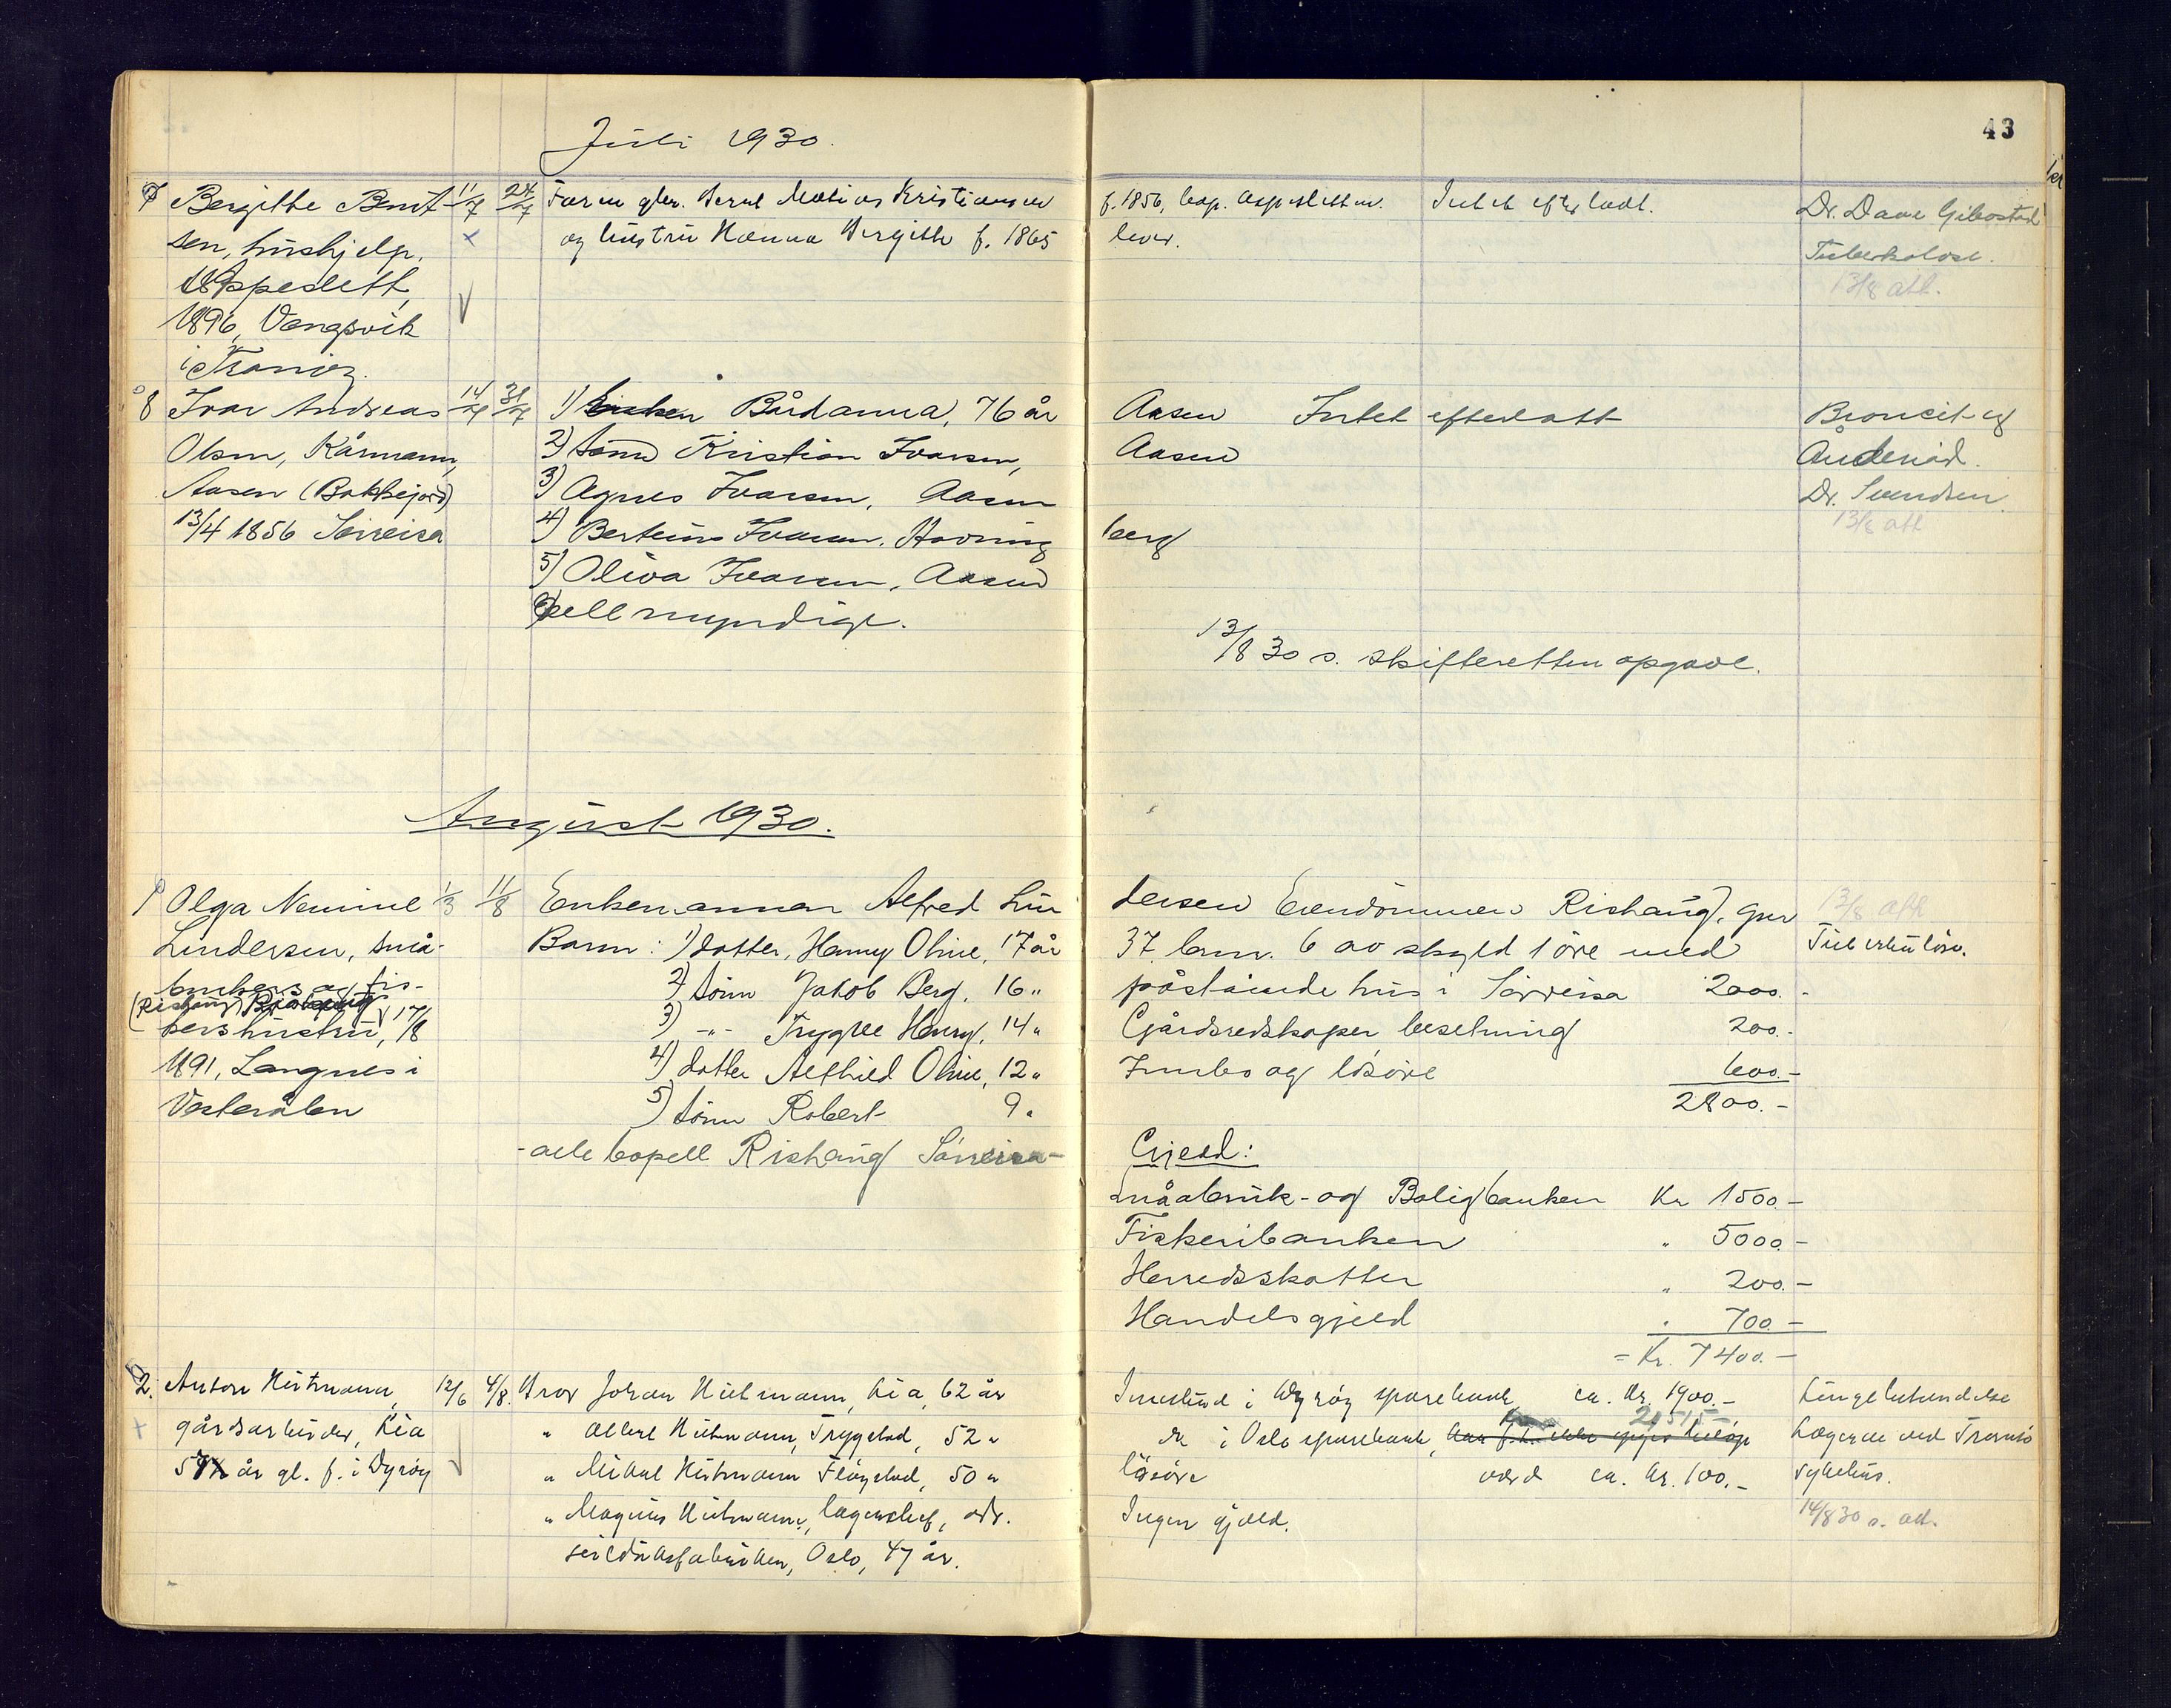 Juli 1930.
43
7 Bergithe Bernt- 11/7 24/7 Faren gbr. Bernt Matias Kristiansen f. 1856, Aspesletten. Intet efterladt. Dr. Daae Gibostad
sen, hushjelp, og hustru Hanna Bergithe f. 1865 lever. Tuberkolose.
Aspeslett, 13/8 att.
1896, Vangsvik
i Tranöy.
8 Ivar Andreas 14/7 31/7 1) Enken Bårdanna, 76 år Aasen Intet efterlatt Broncit og
Olsen, Kårmann, 2) Sönn Kristian Ivarsen, Aasen Åndenöd.
Aasen (Bakkejord) 3) Agnes Ivarsen, Aasen Dr. Svendsen
13/4 1856 Sörreisa 4) Berteus Ivarsen, Havning berg 13/8 att
5) Oliva Ivarsen, Aasen
alle myndige.
13/8 30 s. skifteretten opgave.
August 1930.
1 Olga Nemine 1/3 11/8 Enkemannen Alfred Lin dersen Eiendommen Rishaug, gnr 13/8 att
Lindersen, små- Barn: 1) datter, Hanny Oline, 17 år 37, brn. 6 av skyld 1 öre med Tuberkulöse.
brukers og fis- 2) sönn Jakob Berg, 16 " påståande hus i Sörreisa 2000.-
(Rishaug)
kershustru, 17/8 3) -"- Trygve Henry, 14 " Gjårdsredskaper besetning 200.-
1891, Langnes i 4) datter Alfhild Oline, 12 " Innbo og lösöre 600.-
Vesterålen 5) sönn Robert 9 " 2800.-
- alle bopell Rishaug Sörreisa - Gjeld:
Småbruk- og Boligbanken Kr 1500.-
Fiskeribanken " 5000.-
Herredsskatter " 200.-
Handelsgjeld " 700.-
= Kr. 7400.-
2. Anton Hutmann, 12/6 4/8. Bror Johan Hutmann, Lia, 62 år Innestående i Dyröy sparebank ca. kr. 1900.- Lungebetendelse
gårdsarbeider, Lia " Albert Hutmann, Trygstad, 52 " do i Oslo sparebank, Lægerne ved Tromsö
år gl. f. i Dyröy " Mikal Hutmann Flöystad, 50 " lösöre verd ca. kr. 100.- sykehus.
" Magnus Hutmann, lagerchef, adr. Ingen gjeld. 14/8 30 s. att.
Oslo, 47 år.